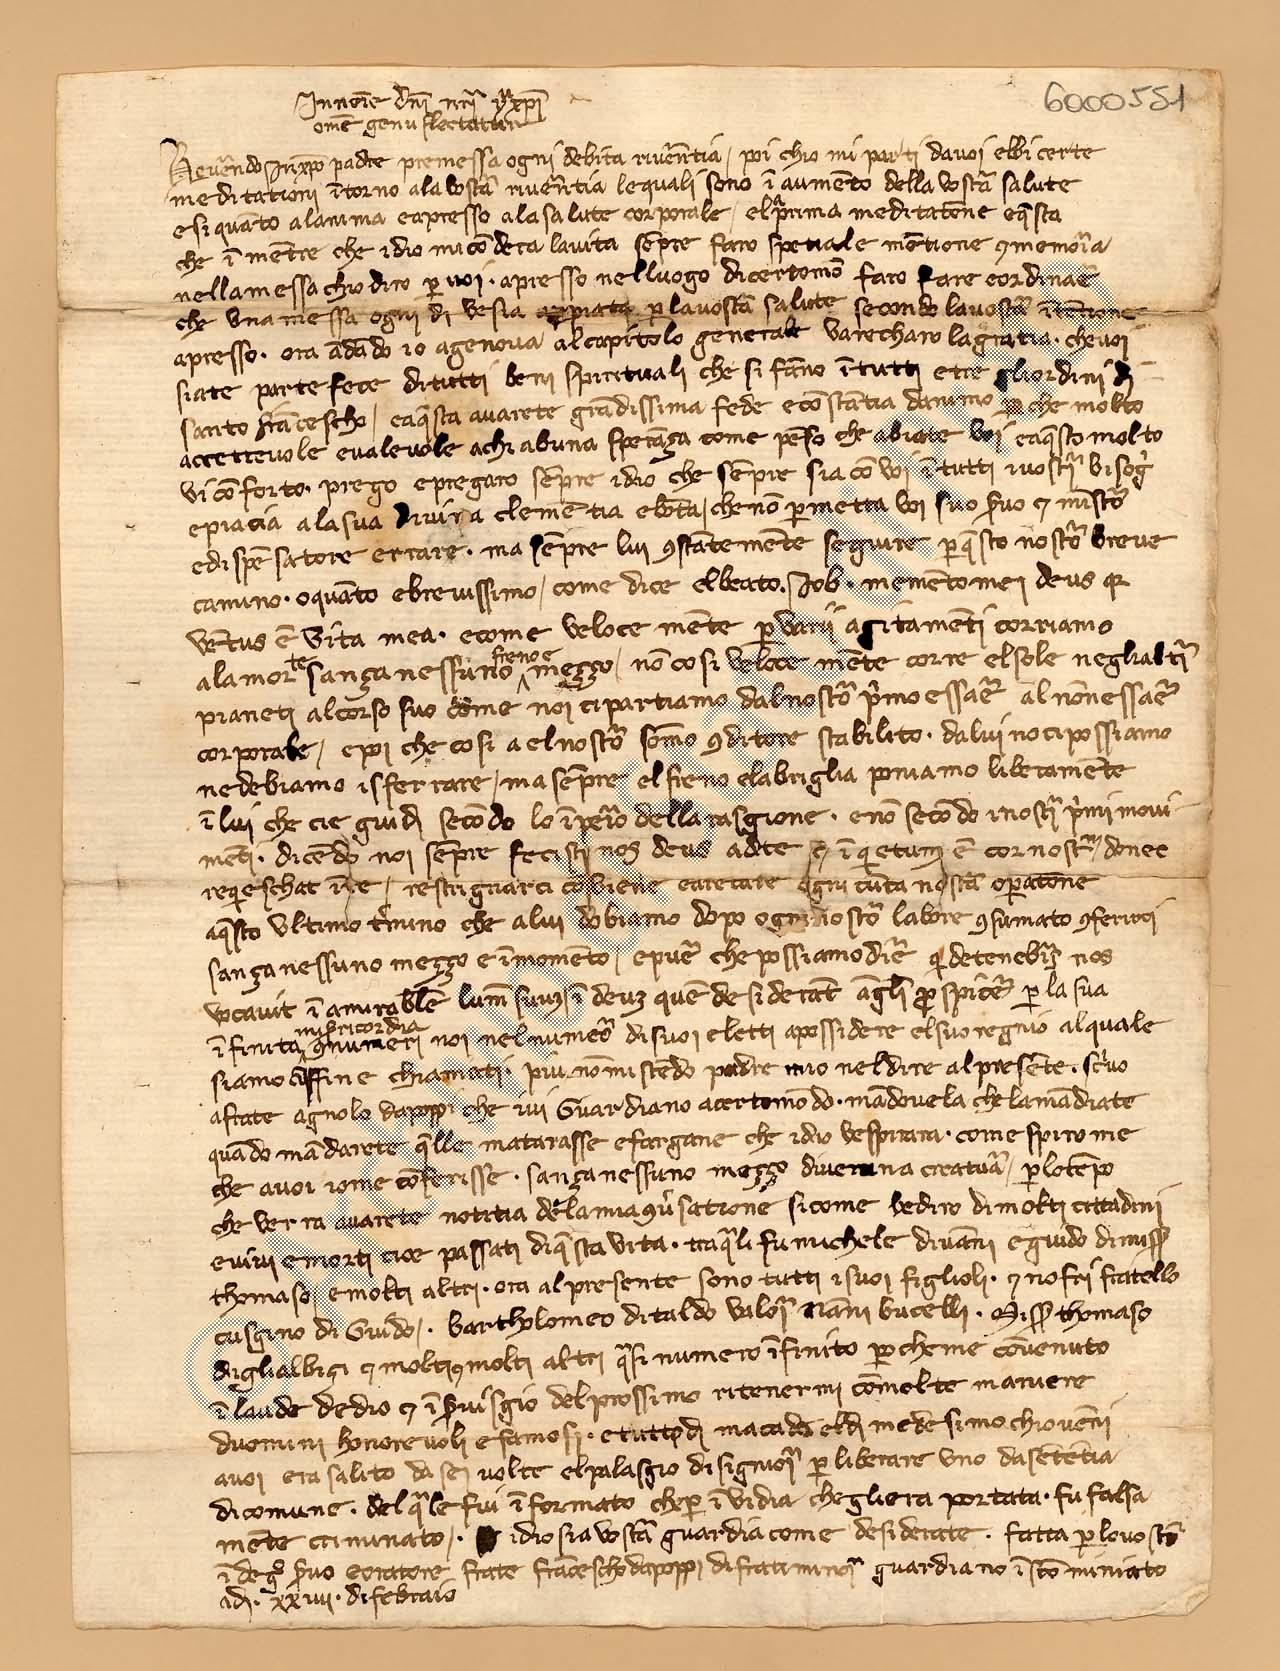 6000551
In noīe dnī nrī yhū xpī
omē genu flectatur
Reverēndo in xp̄o padre premessa ogni debita riverētia / poi chio mi parti da voi ebbi certe
meditationi ītorno a la vostrā riverētia le quali sono ī aumēto della vostrā salute
e si quāto a lanima e apresso a la salute corporale / el prima meditatōne e q̄sta
che ī mētre che idio mi cōcedera la vita sēpre faro spetiale mētione 9 memoria
nella messa chio diro p voi · apresso nel luogo di certomō faro fare e ordinare
che una messa ogni di ve sia p la vostrā salute secondo la vostrā ītētione
apresso · ora ādādo io a genova al capitolo generale v arecharo la gratia · che voi
siate partefece di tutti beni spirituali che si fāno ī tutti e tre gli ordini di
santo frācescho / e a q̄sta avarete grādissima fede e cōstātia danimo p che molto
accettevole e valevole a chi a buna sperāza come pēso che abiate voi e a q̄sto molto
vi cōforto · prego e pregaro sēpre idio che sēpre sia cō voi ī tutti i vostri bisogi
e piacia a la sua divina clemētia e bōta / che nō pmetta voi suo svo 7 ministro
e dispēsatore errare · ma sēpre lui 9stātemēte seguire p q̄sto nostro breve
camino · o quāto e brevissimo / come dice el beato Job · memēto mei deus qr
vētus ē vita mea · e come veloce mēte p varii agitamēti corriamo
a la morte sanza nessuno freno e mezzo / nō cosi veloce mēte corre el sole negli altri
pianeti al corso suo come noi ci partiamo dal nostro pimo essare al nō essare
corporale / e poi che cosi a el nostro sōmo 9ditore stabilito · da lui no ci possiamo
ne debiamo isferrare / ma sēpre el freno e la briglia poniamo liberamēte
ī lui che cie guidi secōdo lo īperio della rasgione · e nō secōdo i nostri pimi movi
mēti · dicēdo noi sēpre fecisti nos deus ad te 7 īquietum ē cor nostrū / donec
requieschat ī te / restrignarci cōviene e arecare ogni cūta nostā operatōne
a q̄sto ultimo tmino che a lui dobiamo dopo ogni nostro labore 9sumato 9ferirci
sanza nessuno mezzo e ī momēto / e puē che possiamo dire q de tenebris nos
vocavit ī amirabile lumē suum ī deuz quē desiderāt āgli pspicē p la sua
īfinita misericordia 9numeri noi nel numero di suoi eletti a possidere el suo regnio al quale
siamo chiamati · piu nō mi stēdo padre mio nel dire al presēte · scrivo
a frate agnolo da poppi che ivi Guardiano a certomōdo · mādovela che la mādiate
quādo mādarete q̄lle matarasse e fargane che idio ve spirara · come spiro me
che a voi io me cōferisse · sanza nessuno mezzo di veruna creatura / p lo tēpo
che verra avarete notitia de la mia 9versatione si come vediro di molti cittadini
e vivi e morti cioe passati di q̄sta vita · tra q̄li fu michele di vāni e guido di miss
thomaso / e molti altri · ora al presente sono tutti i suoi figlioli · 7 nofri fratello
cusgino di Guido / · bartholomeo di taldo valori nāni bucelli · Miss thomaso
digli albizi 7 molti 9 molti altri q̄si numero īfinito po che me cōvenuto
ī laude de dio 7 ī svisgio del prossimo ritenermi cō molte maniere
duomini honorevoli e famosi · e tutto di m acade el di medesimo chio vēni
a voi era salito da sei volte el palasgio di signori p liberare uno da sētētia
di comune · del q̄le fui īformato che p īvidia che gli era portata · fu falsa
mēte criminato / · idio sia vostrā guardia come desiderate · fatta p lo vostro
īdegō svo e oratore frate frācescho da poppi di frati minori guardiano ī sto miniato
a di · xxiiii · di febraio